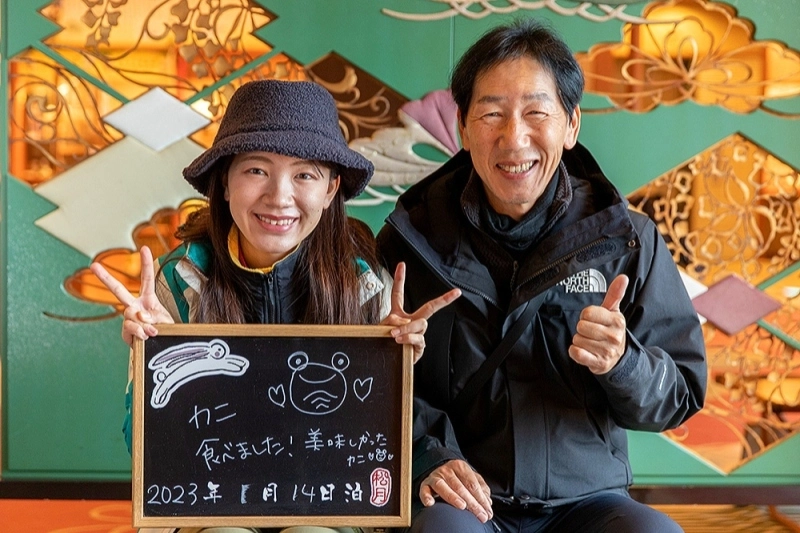 カニ
食べました! 美味しかった
カニ
2023年 1月 14日泊 松月
THE
NORTH
FACE